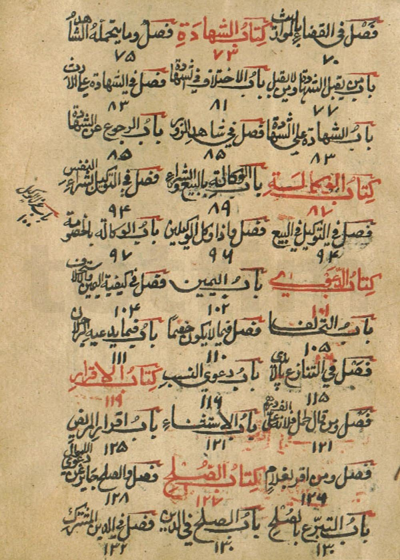 فصل في القضاء بالمواريث كتاب الشهادة فصل وما يتحمله الشاهد
٧٠ ٧٣ ٧٥
باب من يقبل الشهادة ومن لا يقبل باب الاختلاف في الشهادة فصل في الشهادة على الارث
٧٧ ٨١ ٨٣
باب الشهادة على الشهادة فصل في شاهد الزور باب الرجوع عن الشهادة
٨٣ ٨٥ ٨٥
كتاب الوكالة باب الوكالة بالبيع والشراء فصل في التوكيل بشراء النفس
٨٧ ٨٩ ٩٤
فصل في التوكيل في البيع فصل واذا وكل الوكيلين باب الوكالة بالخصومة
٩٤ ٩٦ ٩٧
باب عزل الوكيل
١٠٠
كتاب الدعوى باب اليمين فصل في كيفية اليمين والاستحلاف
١٠١ ١٠٢ ١٠٤
باب التحالف فصل فيما لا يكون خصما باب فيما يدعيه الرجلان
١٠٥ ١١٠ ١١١
فصل في التنازع بالايدي باب دعوى النسب كتاب الاقرار
١١٥ ١١٦ ١١٩
فصل ومن قال حمل فلانة باب الاستثناء باب اقرار المريض
١٢١ ١٢١ ١٢٥
فصل ومن اقر بغلام كتاب الصلح فصل والصلح جائز عن دعوى
١٢٦ ١٢٧ ١٢٨
باب التبرع بالصلح باب الصلح في الدين فصل في الدين المشترك
١٣٠ ١٣٠ ١٣٢